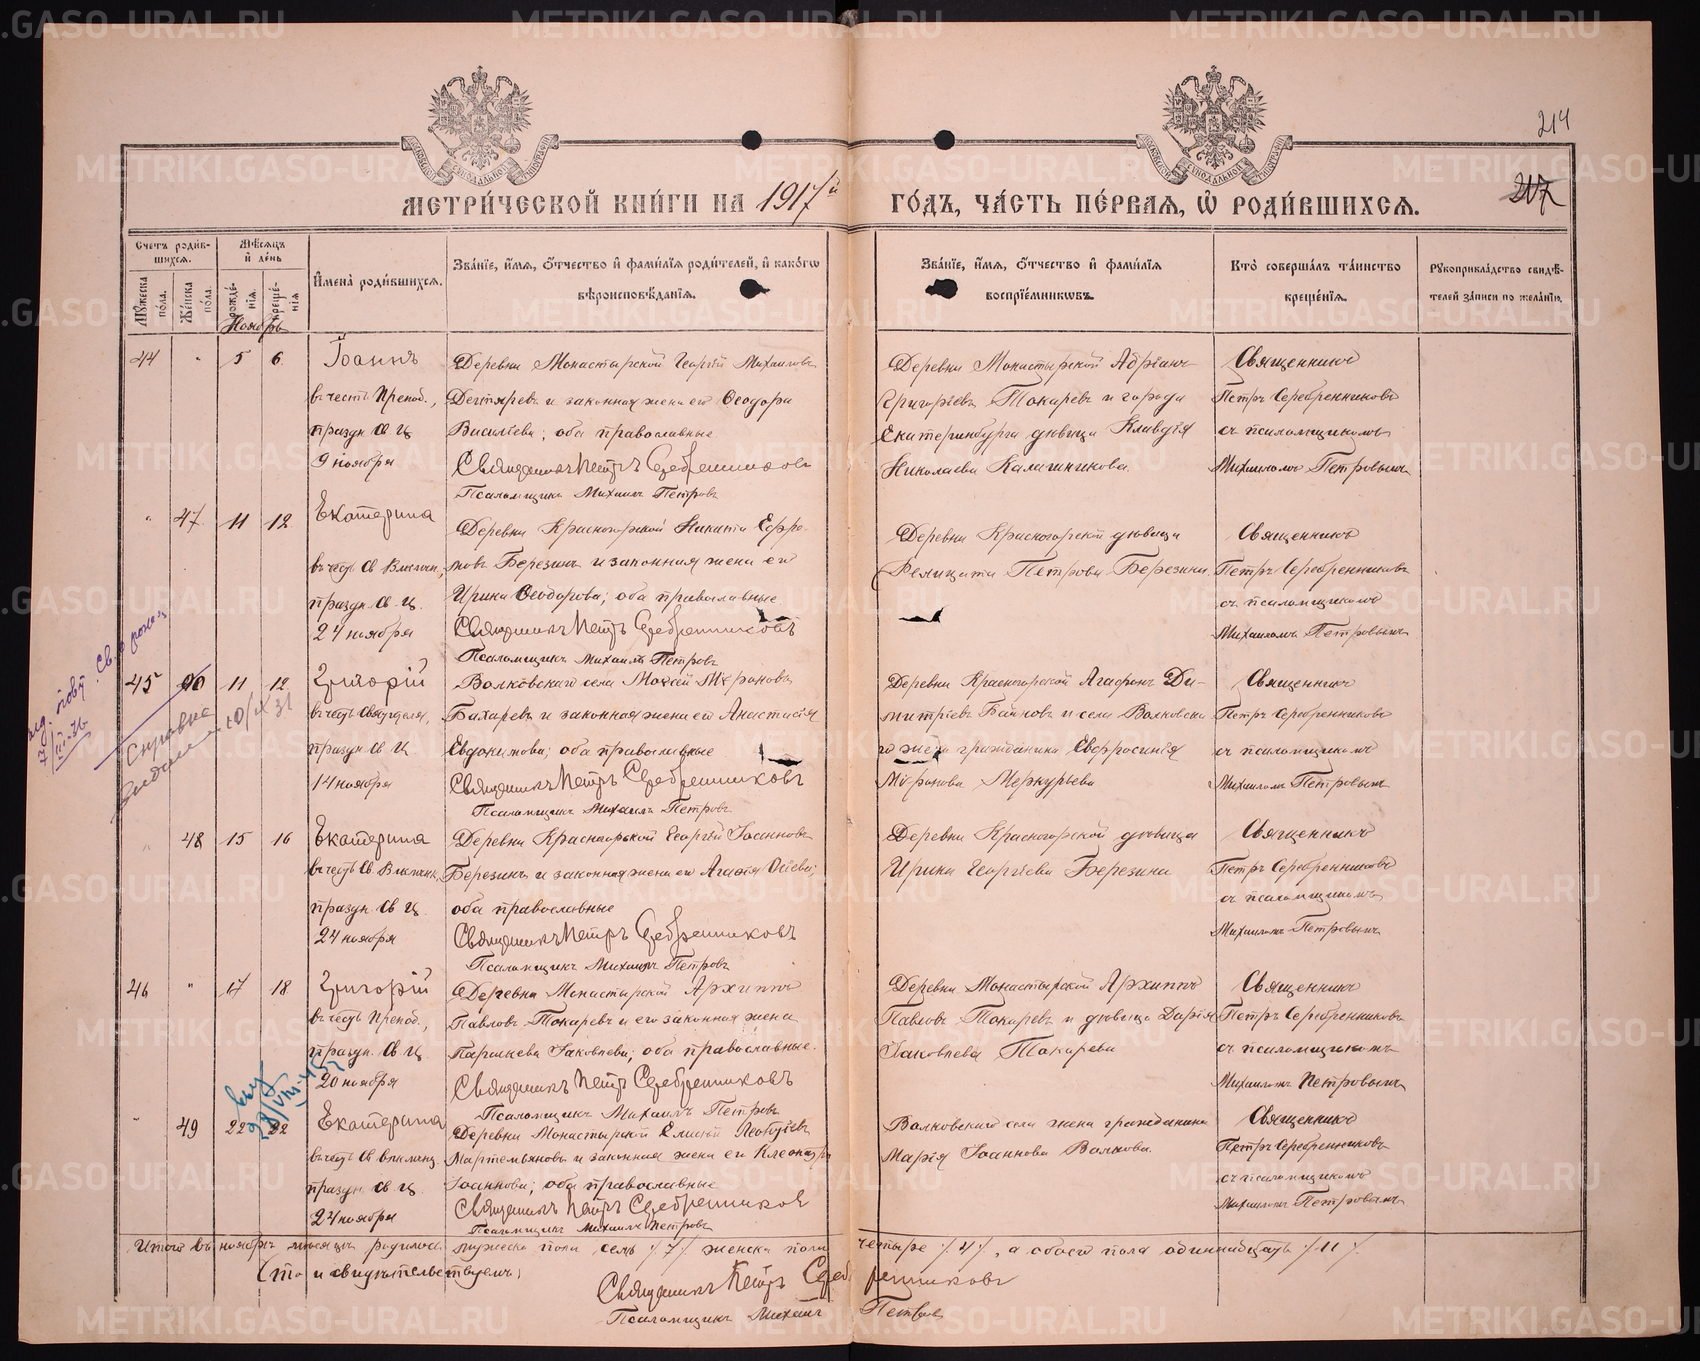 METRIKI.GASO-URAL.RU
214
217
МЕТРИ́ЧЕСКОЙ КНИ́ГИ НА 1917й ГО́ДЪ, ЧА́СТЬ ПЕ́РВАЯ, Ѽ РОДИ́ВШИХСЯ.
Счетъ роди́вшихся.
Мѣ́сяцъ и҆ де́нь
Му́жеска по́ла.
Же́нска по́ла.
рожде́нія.
креще́нія
И҆мена̀ роди́вшихся.
Зва́нїе, и҆́мя, ѻ҆́тчество и҆ фами́лїя роди́телей, и҆ како́гѡ вѣроисповѣ́данїя.
Зва́нїе, и҆́мя, ѻ҆́тчество и҆ фами́лїя воспрїе́мникѡвъ.
Кто̀ соверша́лъ та́инство креще́нїя.
Рукоприкла́дство свидѣ́телей за́писи по жела́нїю.
Ноябрь
44 " 5 6
Іоаннъ
въ честь Препод.,
праздн. Св. Ц.
9 ноября
Деревни Монастырской Георгій Михаиловъ
Дегтяревъ и законная жена его Ѳеодора
Васильева; оба православные
Священникъ Петръ Серебренниковъ
Псаломщикъ Михаилъ Петровъ
Деревни Монастырской Адріанъ
Григорьевъ Токаревъ и города
Екатеринбурга дѣвица Клавдія
Николаева Калашникова.
Священникъ
Петръ Серебренниковъ
съ псаломщикомъ
Михаиломъ Петровымъ
" 47 11 12
Екатерина
въ честь Св. Влкмчн.,
праздн. Св. Ц.
24 ноября
Деревни Красногорской Никита Ефре-
мовъ Березинъ и законная жена его
Ирина Ѳеодорова; оба православные
Священникъ Петръ Серебренниковъ
Псаломщикъ Михаилъ Петровъ
Деревни Красногорской дѣвица
Фелицата Петрова Березина.
Священникъ
Петръ Серебренниковъ
съ псаломщикомъ
Михаиломъ Петровымъ
45 11 12
Григорій
въ честь Святителя,
праздн. Св. Ц.
14 ноября
Волковскаго села Моисей Мѵроновъ
Бахаревъ и законная жена его Анастасія
Евдокимова; оба православные
Священникъ Петръ Серебренниковъ
Псаломщикъ Михаилъ Петровъ
Деревни Красногорской Агафонъ Ди-
митріевъ Баиновъ и села Волковска-
го жена гражданина Евфросинія
Мѵронова Меркурьева
Священникъ
Петръ Серебренниковъ
съ псаломщикомъ
Михаиломъ Петровымъ
Справка
" 48 15 16
Екатерина
въ честь Св. Влкмчн.,
праздн. Св. Ц.
24 ноября
Деревни Красногорской Георгій Іоанновъ
Березинъ и законная жена его Агафія
оба православные
Священникъ Петръ Серебренниковъ
Псаломщикъ Михаилъ Петровъ
Деревни Красногорской дѣвица
Ирина Георгіева Березина
Священникъ
Петръ Серебренниковъ
съ псаломщикомъ
Михаиломъ Петровымъ
46 " 17 18
Григорій
въ честь Препод.,
праздн. Св. Ц.
20 ноября
Деревни Монастырской Архиппъ
Павловъ Токаревъ и его законная жена
Параскева Іаковлева; оба православные.
Священникъ Петръ Серебренниковъ
Псаломщикъ Михаилъ Петровъ
Деревни Монастырской Архиппъ
Павловъ Токаревъ и дѣвица Дарія
Іаковлева Токарева
Священникъ
Петръ Серебренниковъ
съ псаломщикомъ
Михаиломъ Петровымъ
" 49 22 22
Екатерина
въ честь Св. Влкмчн.
праздн. Св. Ц.
24 ноября
Деревни Монастырской Елисей Леонтіевъ
Мартемьяновъ и законная жена его Клеопатра
Іоаннова; оба православные
Священникъ Петръ Серебренниковъ
Псаломщикъ Михаилъ Петровъ
Волковскаго села жена гражданина
Марія Іоаннова Волкова.
Священникъ
Петръ Серебренниковъ
съ псаломщикомъ
Михаиломъ Петровымъ
Итого въ ноябрѣ мѣсяцѣ родилось мужеска пола семь /7/ женска пола четыре /4/, а обоего пола одиннадцать /11/.
что и свидѣтельствуемъ:
Священникъ Петръ Серебренниковъ
Псаломщикъ Михаилъ Петровъ